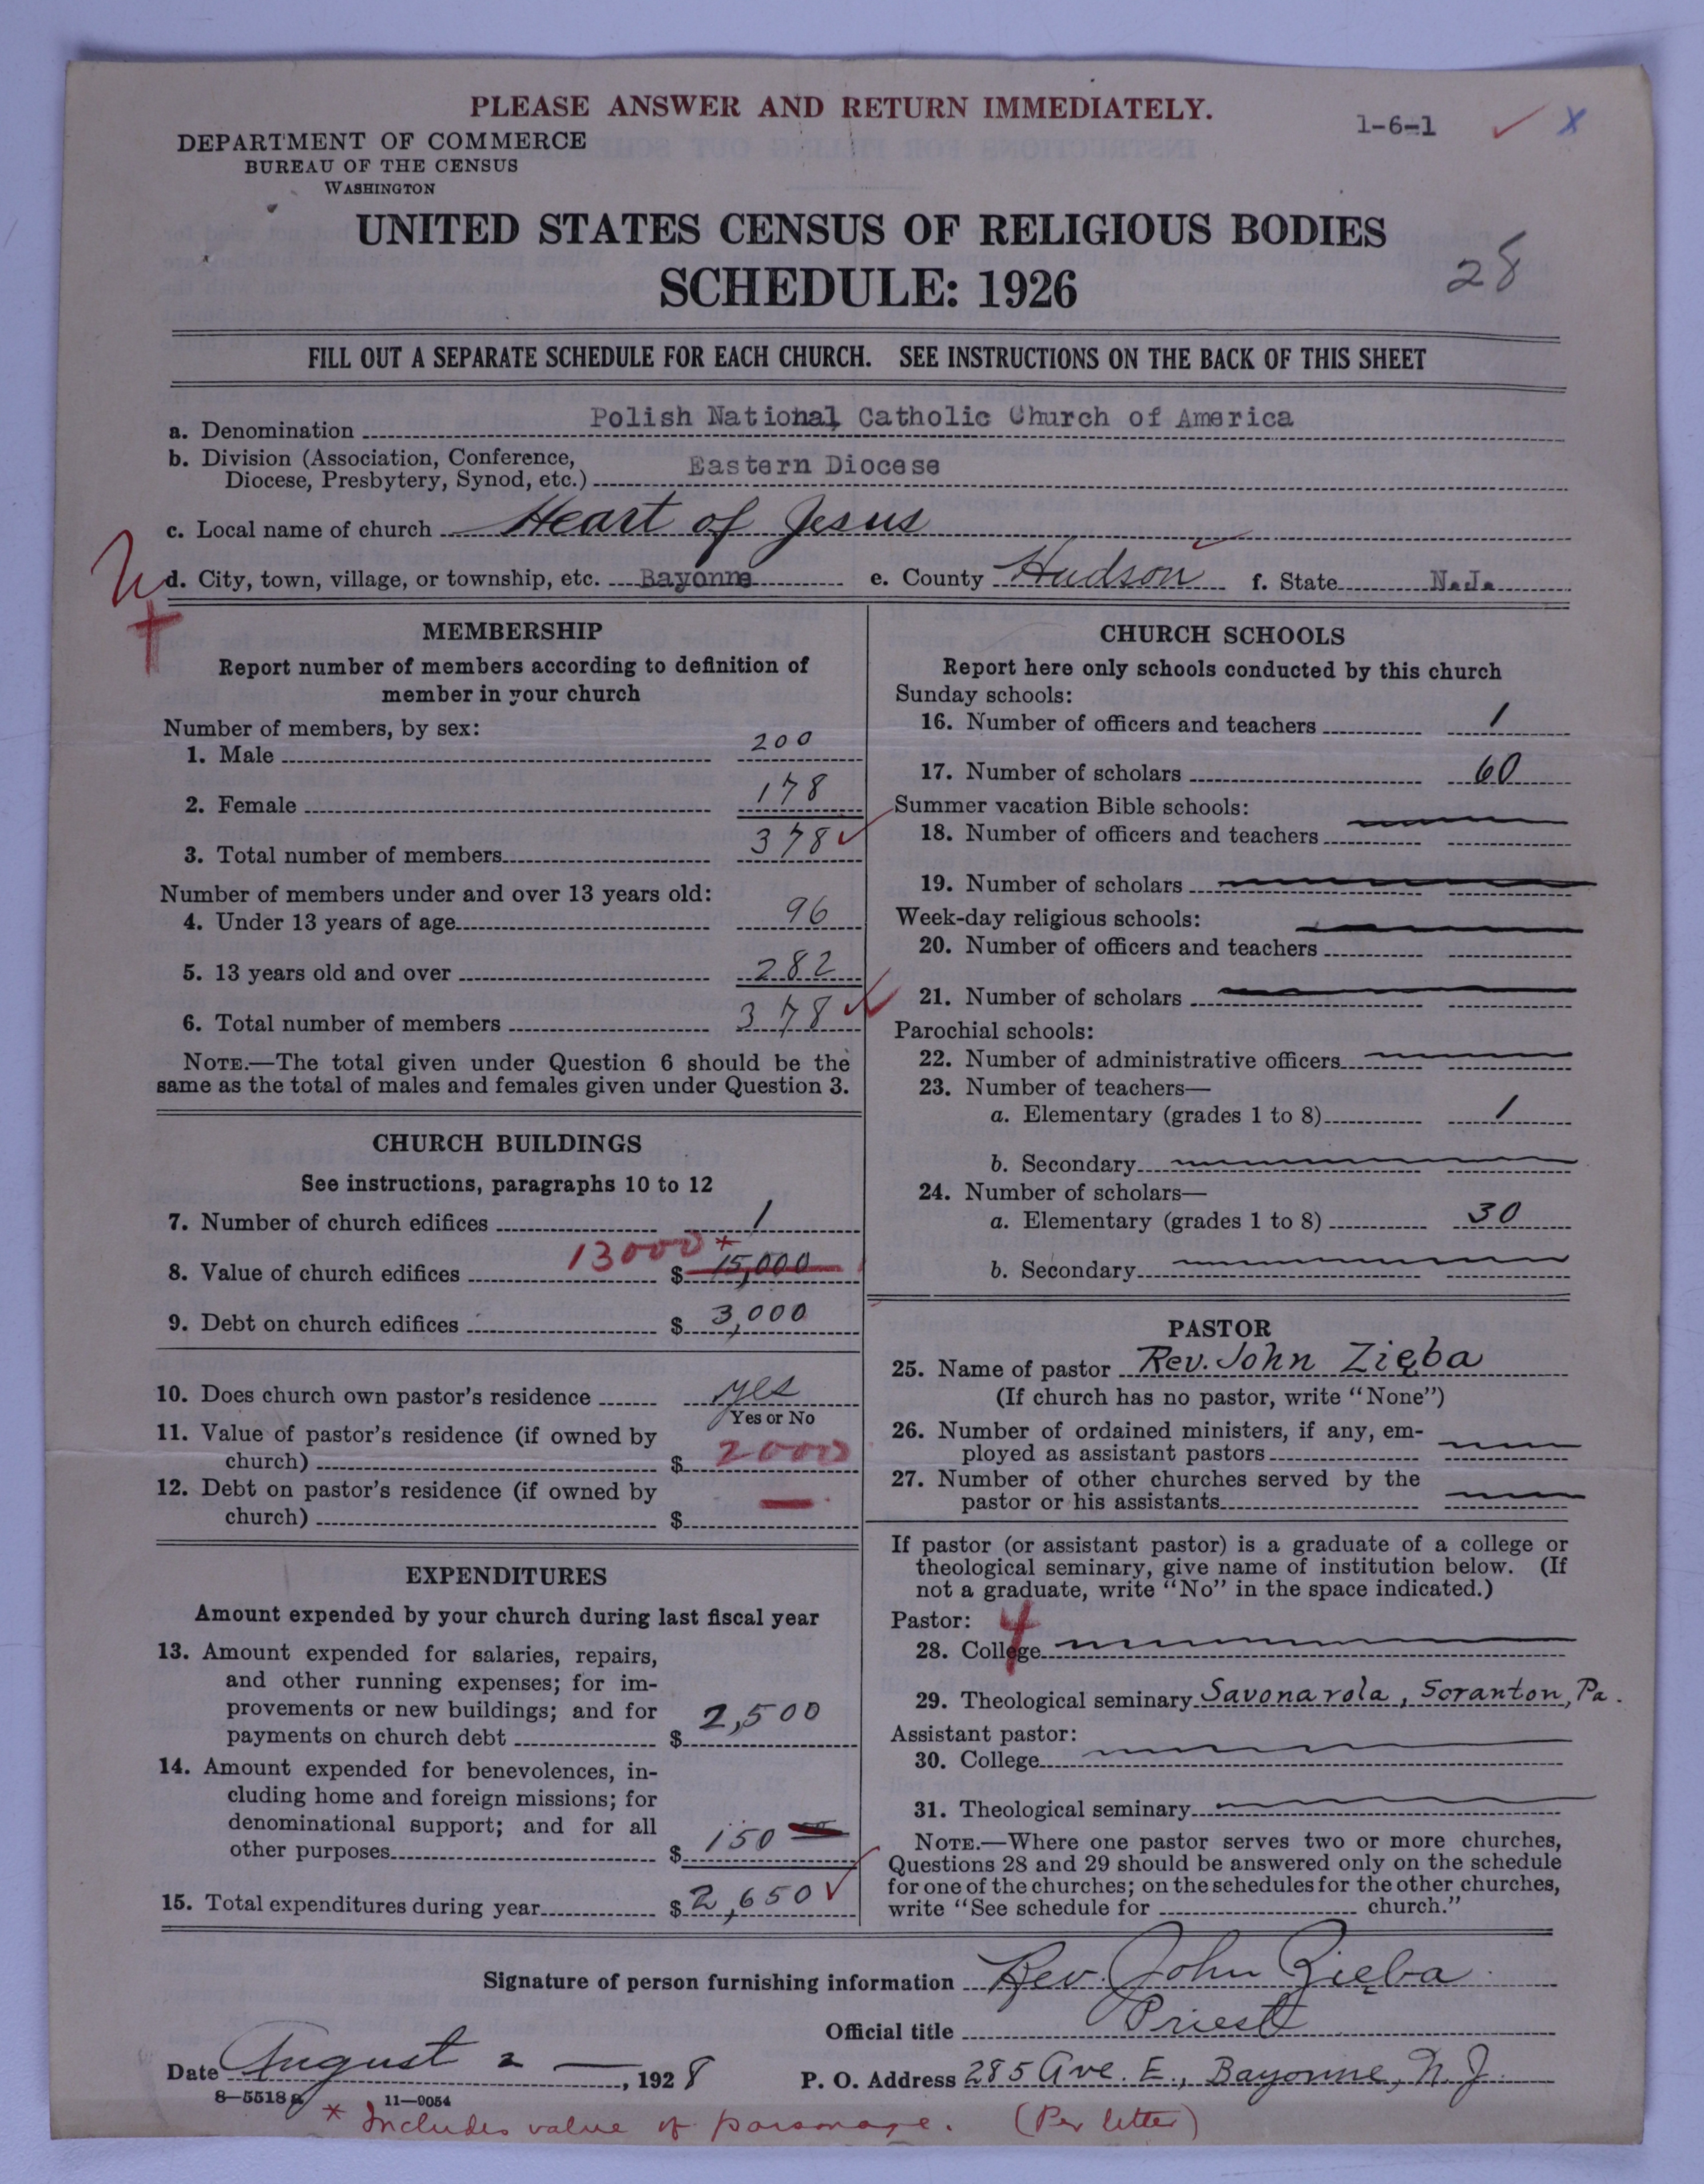 PLEASE ANSWER AND RETURN IMMEDIATELY.
1-6-1
x
DEPARTMENT OF COMMERCE
BUREAU OF THE CENSUS
WASHINGTON
UNITED STATES CENSUS OF RELIGIOUS BODIES
SCHEDULE: 1926
28
FILL OUT A SEPARATE SCHEDULE FOR EACH CHURCH. SEE INSTRUCTIONS ON THE BACK OF THIS SHEET
a. Denomination Polish National Catholic Church of America
b. Division (Association, Conference,
Diocese, Presbytery, Synod, etc.) Eastern Diocese
c. Local name of church Heart of Jesus
d. City, town, village, or township, etc. Bayonne e. County Hudson f. State N.J.
MEMBERSHIP
Report number of members according to definition of
member in your church
Number of members, by sex:
1. Male 200
2. Female 178
3. Total number of members 378
Number of members under and over 13 years old:
4. Under 13 years of age 96
5. 13 years old and over 282
6. Total number of members 378
NOTE.—The total given under Question 6 should be the
same as the total of males and females given under Question 3.
CHURCH BUILDINGS
See instructions, paragraphs 10 to 12
7. Number of church edifices 1
8. Value of church edifices 13000* $ 15,000
9. Debt on church edifices $ 3,000
10. Does church own pastor's residence yes
Yes or No
11. Value of pastor's residence (if owned by
church) $ 2000
12. Debt on pastor's residence (if owned by
church) $ —
EXPENDITURES
Amount expended by your church during last fiscal year
13. Amount expended for salaries, repairs,
and other running expenses; for im-
provements or new buildings; and for
payments on church debt $ 2,500
14. Amount expended for benevolences, in-
cluding home and foreign missions; for
denominational support; and for all
other purposes $ 150
15. Total expenditures during year $ 2,650
CHURCH SCHOOLS
Report here only schools conducted by this church
Sunday schools:
16. Number of officers and teachers 1
17. Number of scholars 60
Summer vacation Bible schools:
18. Number of officers and teachers
19. Number of scholars
Week-day religious schools:
20. Number of officers and teachers
21. Number of scholars
Parochial schools:
22. Number of administrative officers
23. Number of teachers—
a. Elementary (grades 1 to 8) 1
b. Secondary
24. Number of scholars—
a. Elementary (grades 1 to 8) 30
b. Secondary
PASTOR
25. Name of pastor Rev. John Zięba
(If church has no pastor, write "None")
26. Number of ordained ministers, if any, em-
ployed as assistant pastors
27. Number of other churches served by the
pastor or his assistants
If pastor (or assistant pastor) is a graduate of a college or
theological seminary, give name of institution below. (If
not a graduate, write "No" in the space indicated.)
Pastor: 4
28. College
29. Theological seminary Savonarola, Scranton, Pa.
Assistant pastor:
30. College
31. Theological seminary
NOTE.—Where one pastor serves two or more churches,
Questions 28 and 29 should be answered only on the schedule
for one of the churches; on the schedules for the other churches,
write "See schedule for church."
Signature of person furnishing information Rev. John Zięba
Official title Priest
Date August 2, 1928 P. O. Address 285 Ave. E., Bayonne, N.J.
8—5518a 11—9054
* Includes value of parsonage. (Per letter)